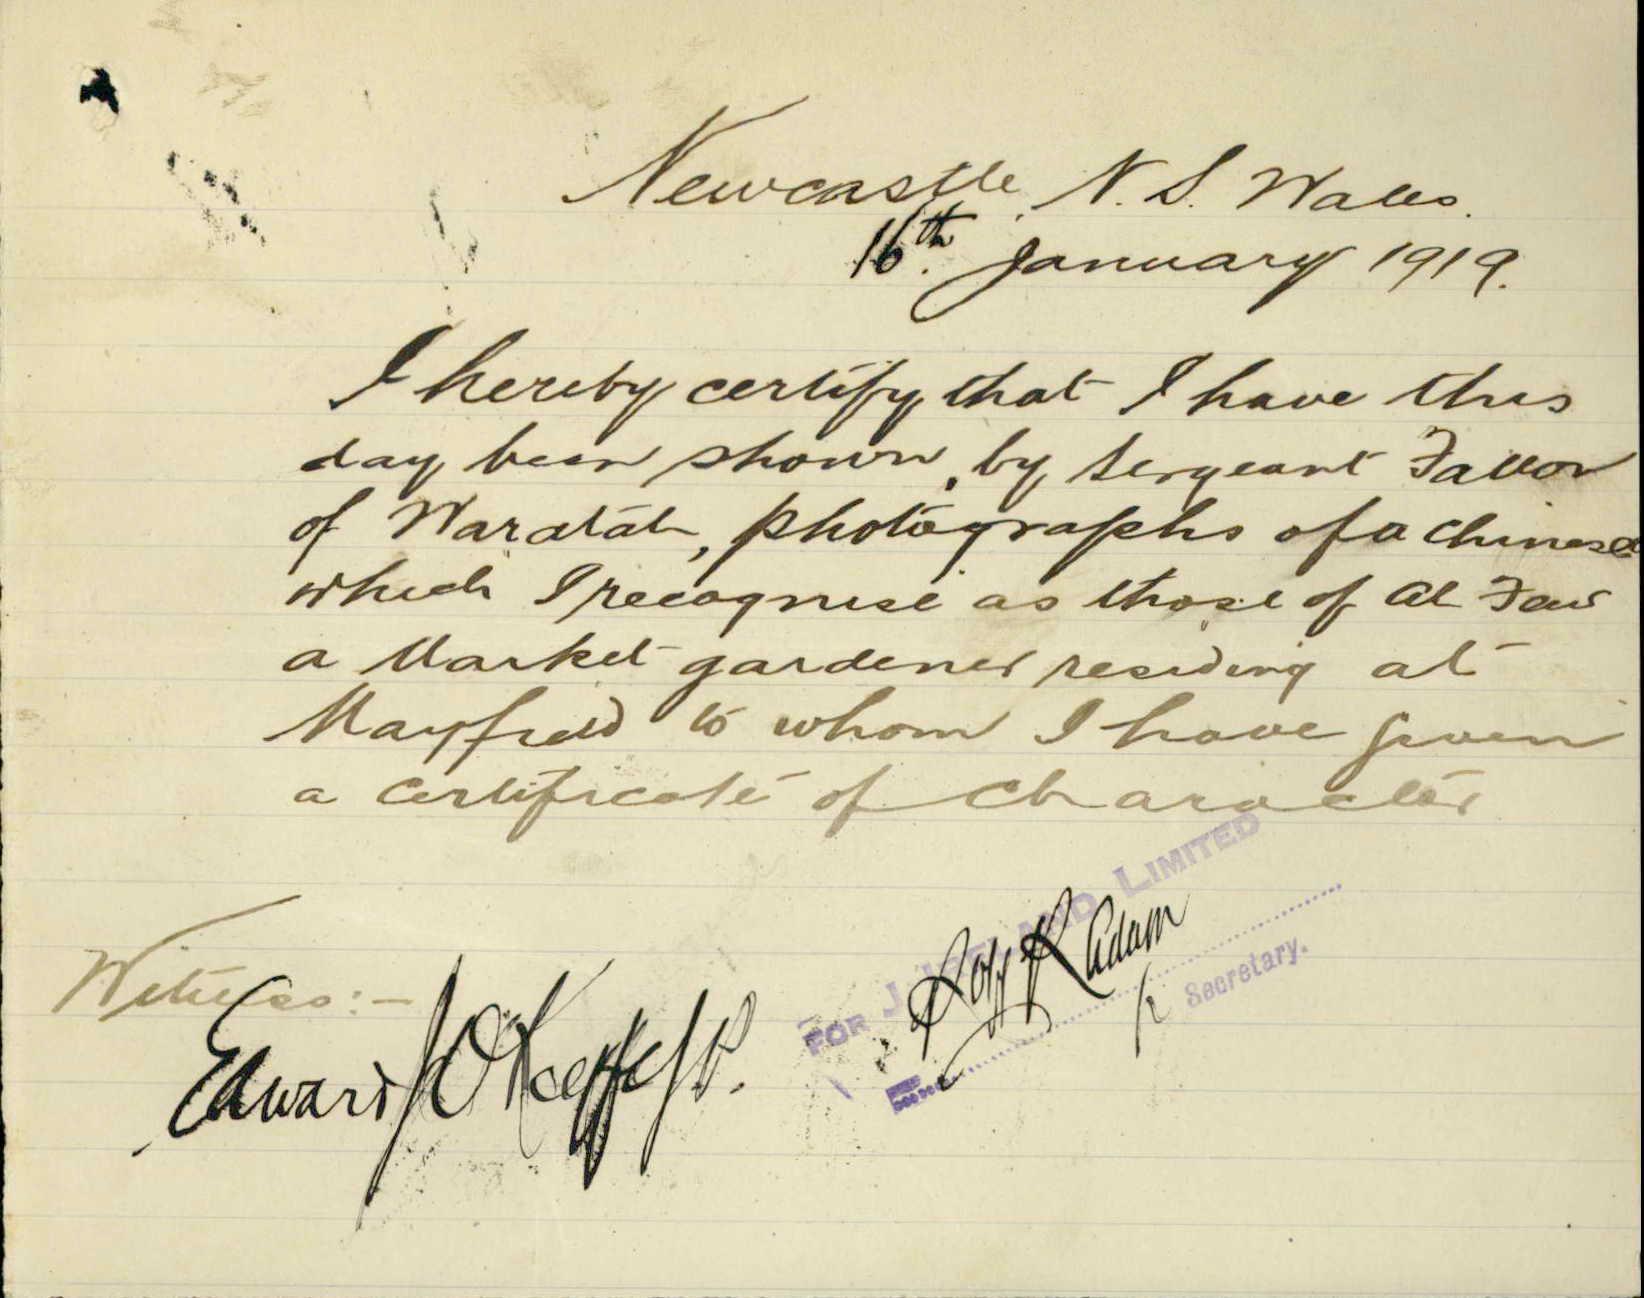 Newcastle, N. S. Wales.
16th. January 1919.
I hereby certify that I have this
day been shown, by Sergeant Fallon
of Waratah, photographs of a Chinese
which I recognise as those of Ah Faw
a Market gardener residing at
Mayfield to whom I have given
a certificate of character
Witness:-
Edward J O'Keeffe J.P.
FOR J. IRELAND LIMITED
Roy R Adam
Secretary.